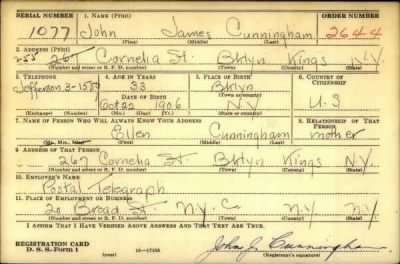 SERIAL NUMBER 1. NAME (Print) ORDER NUMBER
1077 John James Cunningham 2644
(First) (Middle) (Last)
2. ADDRESS (Print)
255 265 Cornelia St. Bklyn Kings N.Y.
(Number and street or R. F. D. number) (Town) (County) (State)
3. TELEPHONE 4. AGE IN YEARS 5. PLACE OF BIRTH 6. COUNTRY OF CITIZENSHIP
Jefferson 3-1589 33 Bklyn
DATE OF BIRTH (Town or county)
Oct 22 1906 N.Y. U.S
(Exchange) (Number) (Mo.) (Day) (Yr.) (State or country)
7. NAME OF PERSON WHO WILL ALWAYS KNOW YOUR ADDRESS 8. RELATIONSHIP OF THAT PERSON
Ellen Cunningham mother
(Mr., Mrs., Miss) (First) (Middle) (Last)
9. ADDRESS OF THAT PERSON
267 Cornelia St Bklyn Kings N.Y.
(Number and street or R. F. D. number) (Town) (County) (State)
10. EMPLOYER'S NAME
Postal Telegraph
11. PLACE OF EMPLOYMENT OR BUSINESS
20 Broad St N.Y.C N.Y.
(Number and street or R. F. D. number) (Town) (County) (State)
I AFFIRM THAT I HAVE VERIFIED ABOVE ANSWERS AND THAT THEY ARE TRUE.
REGISTRATION CARD
D. S. S. Form 1 (over) 16-17105 John J. Cunningham
(Registrant's signature)